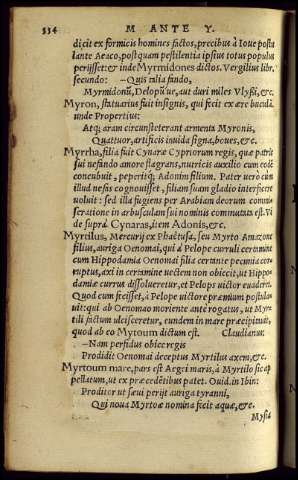 334 M ANTE Y.
dicit ex formicis homines factos, precibus à Ioue postu
lante Aeaco, postquam pestilentia ipsius totus populus
perijsset: & inde Myrmidones dictos. Vergilius libr.
secundo: – Quis talia fando,
Myrmidonũ, Delopũue, aut duri miles Vlyssi, &c.
Myron, statuarius fuit insignis, qui fecit ex ære bucula
unde Propertius:
Atq; aram circunsteterant armenta Myronis,
Quattuor, artificis inuida signa, boues, &c.
Myrrha, filia fuit Cynaræ Cypriorum regis, quæ patris
sui nefando amore flagrans, nutricis auxilio cum eo
concubuit, peperitq; Adonim filium. Pater uerò cùm
illud nefas cognouisset, filiam suam gladio interficere
uoluit: sed illa fugiens per Arabiam deorum commi
seratione in arbusculam sui nominis commutata est. Vi
de suprà Cynaras, item Adonis, &c.
Myrtilus, Mercurij ex Phaëtusa, seu Myrto Amazone
filius, auriga Oenomai, qui à Pelope curruli certamine
cum Hippodamia Oenomai filia certante pecunia cor
ruptus, axi in certamine uectem non obiecit, ut Hippo
damiæ currus dissolueretur, et Pelops uictor euaderet.
Quod cum fecisset, à Pelope uictore præmium postula
uit: qui ab Oenomao moriente ante rogatus, ut Myr
tili factum ulcisceretur, eundem in mare præcipitauit,
quod ab eo Mytoum dictum est. Claudianus:
–Nam perfidus obice regis
Prodidit Oenomai deceptus Myrtilus axem, &c.
Myrtoum mare, pars est Aegei maris, à Myrtilo sic ap
pellatum, ut ex præcedētibus patet. Ouid. in Ibin:
Proditor ut sæui perijt auriga tyranni,
Qui noua Myrtoæ nomina fecit aquæ, &c.
Mysia